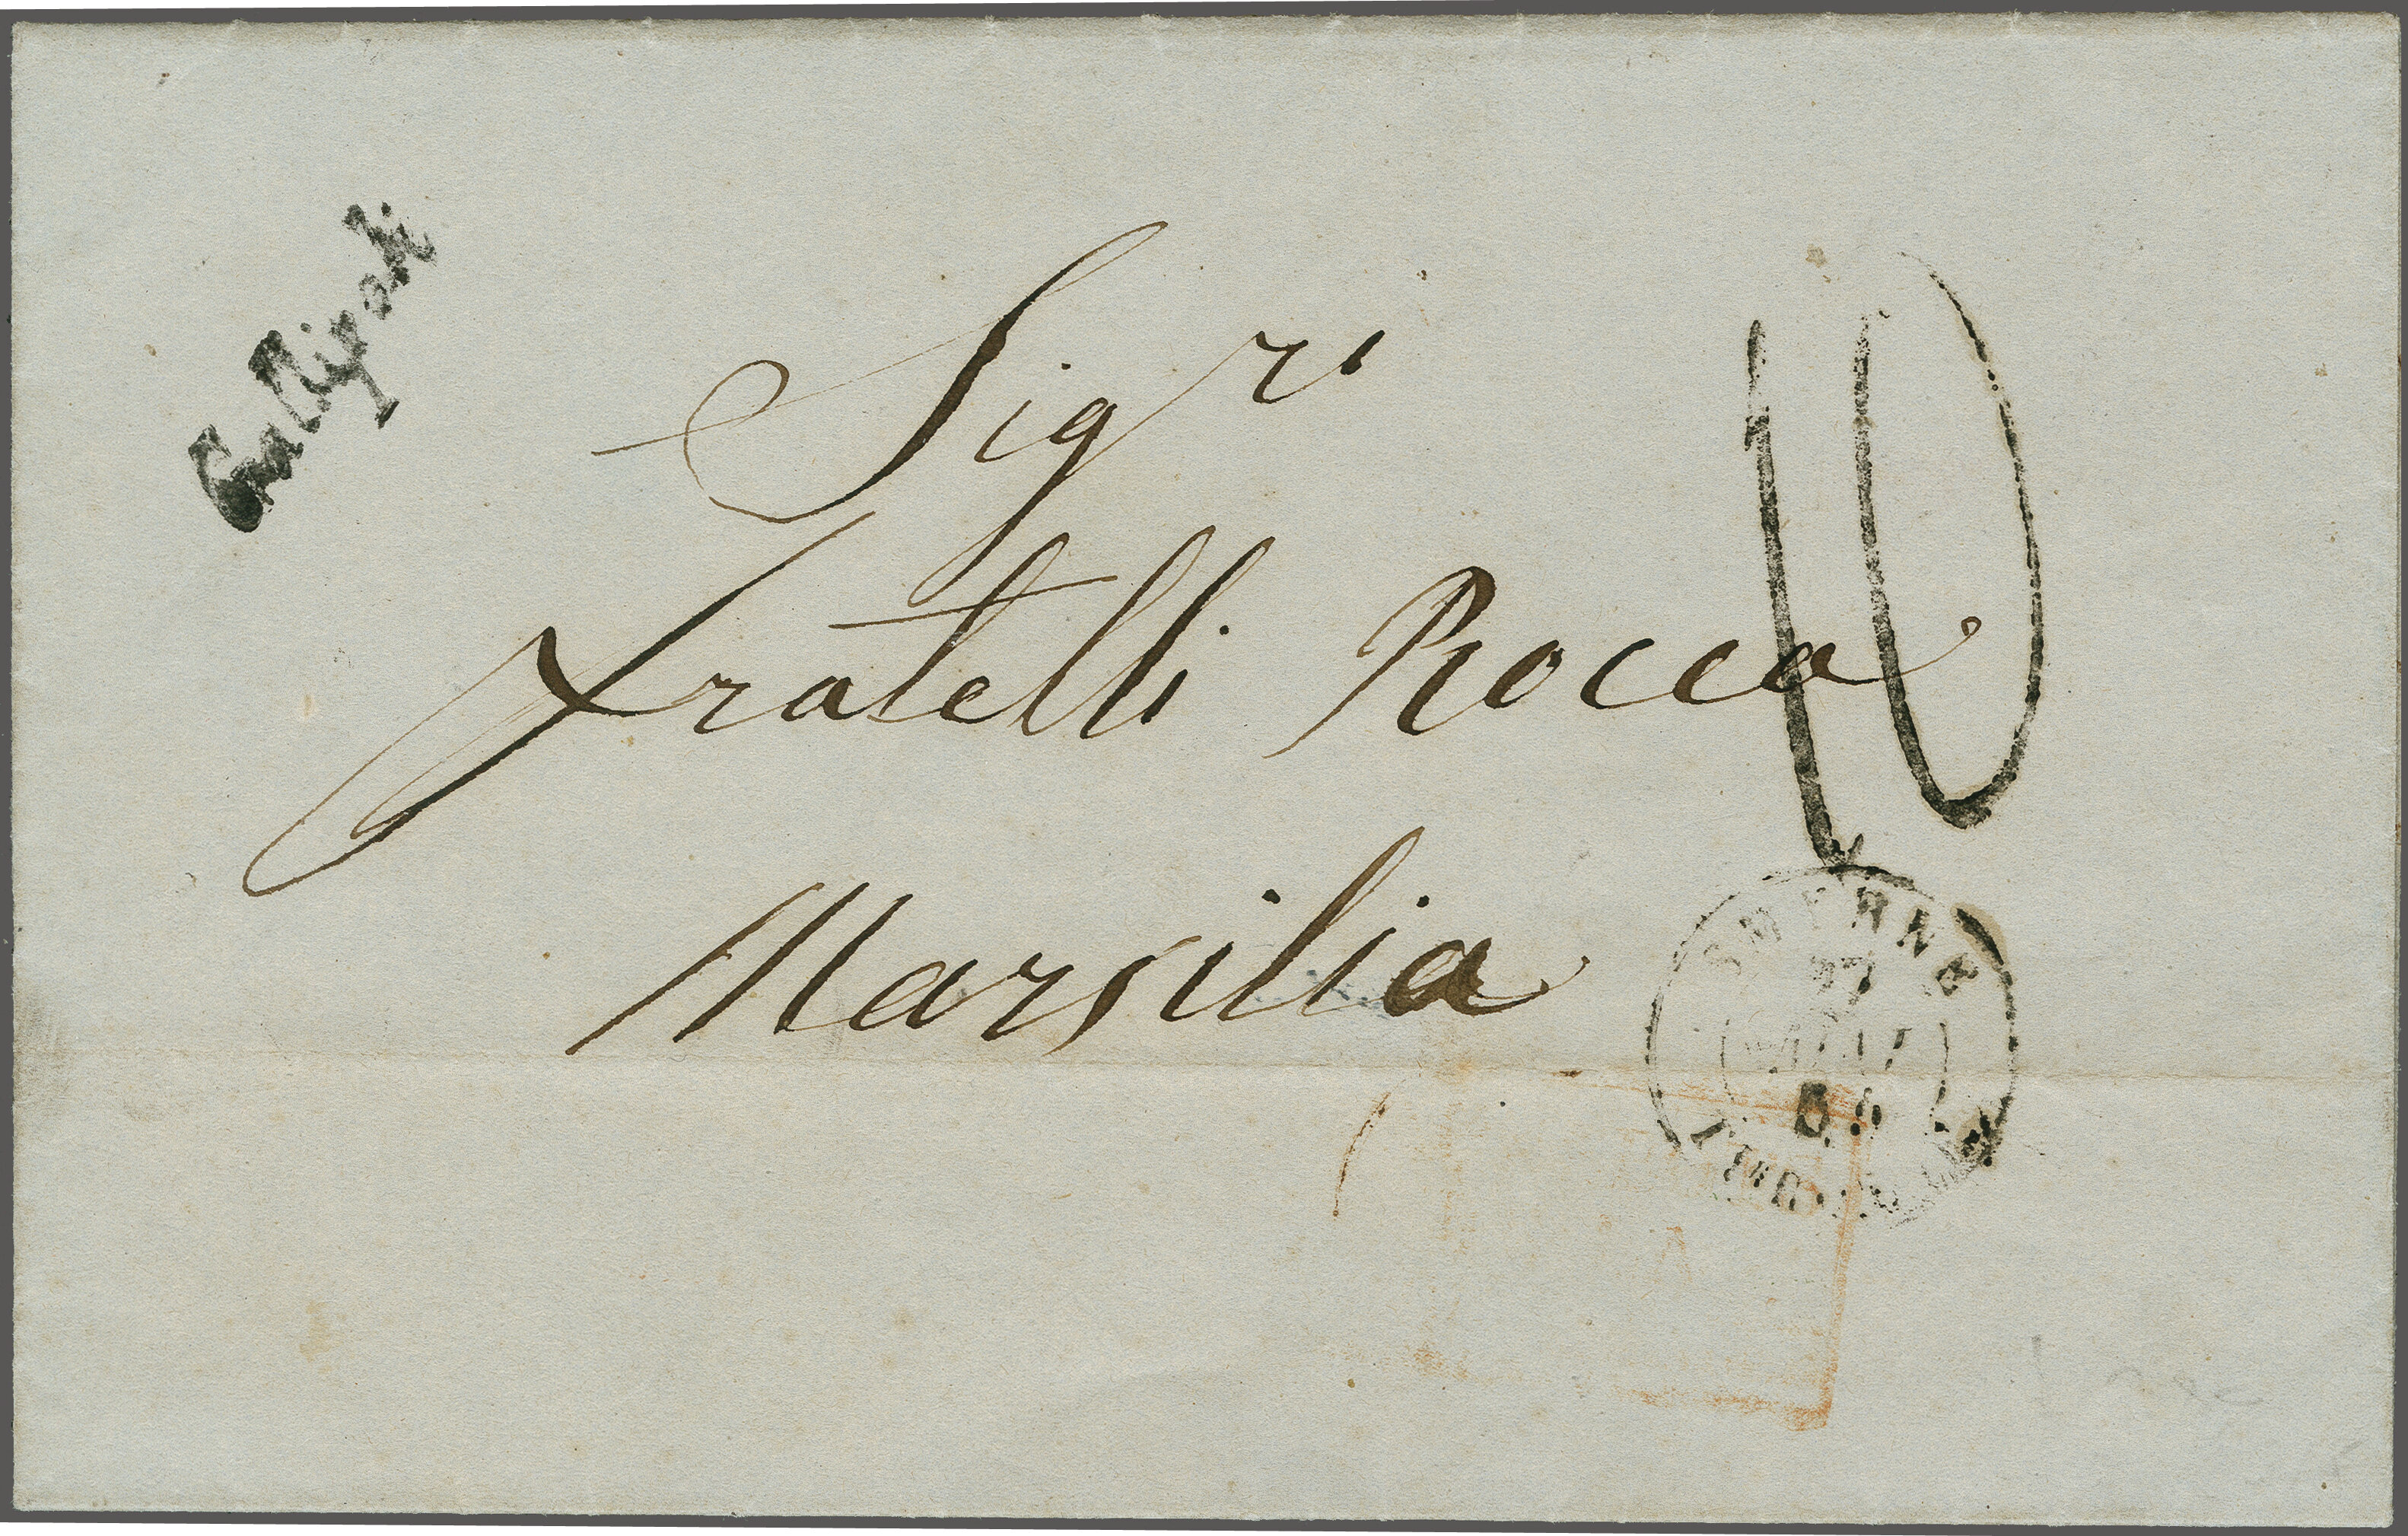 Gallipoli
Sig.ri
Fratelli Rocca
Marsilia
10
SMYRNE
27
MAI